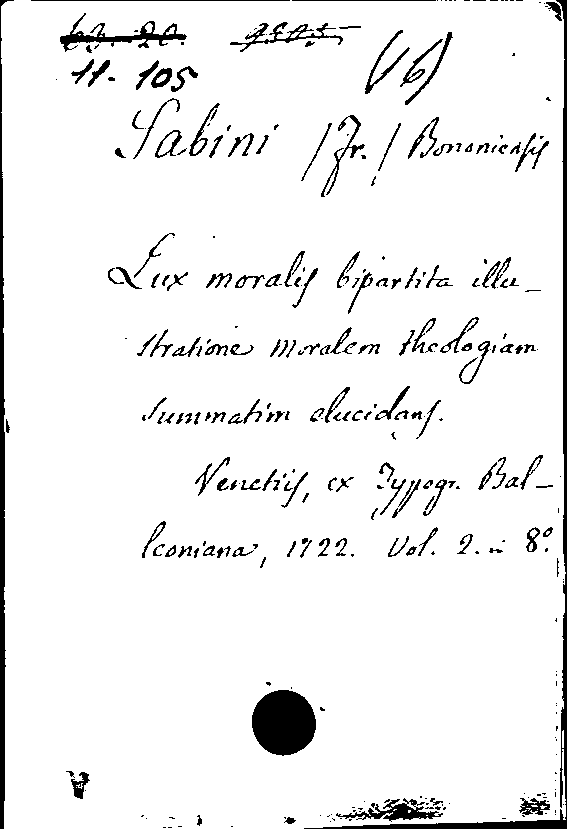 63. 20.
11. 105
(16)
Sabini /Fr./ Bononiensis
Lux moralis bipartita illu_
stratione moralem theologiam
summatim elucidans.
Venetiis, ex Typogr. Bal_
leoniana, 1722. Vol. 2. in 8º.
A